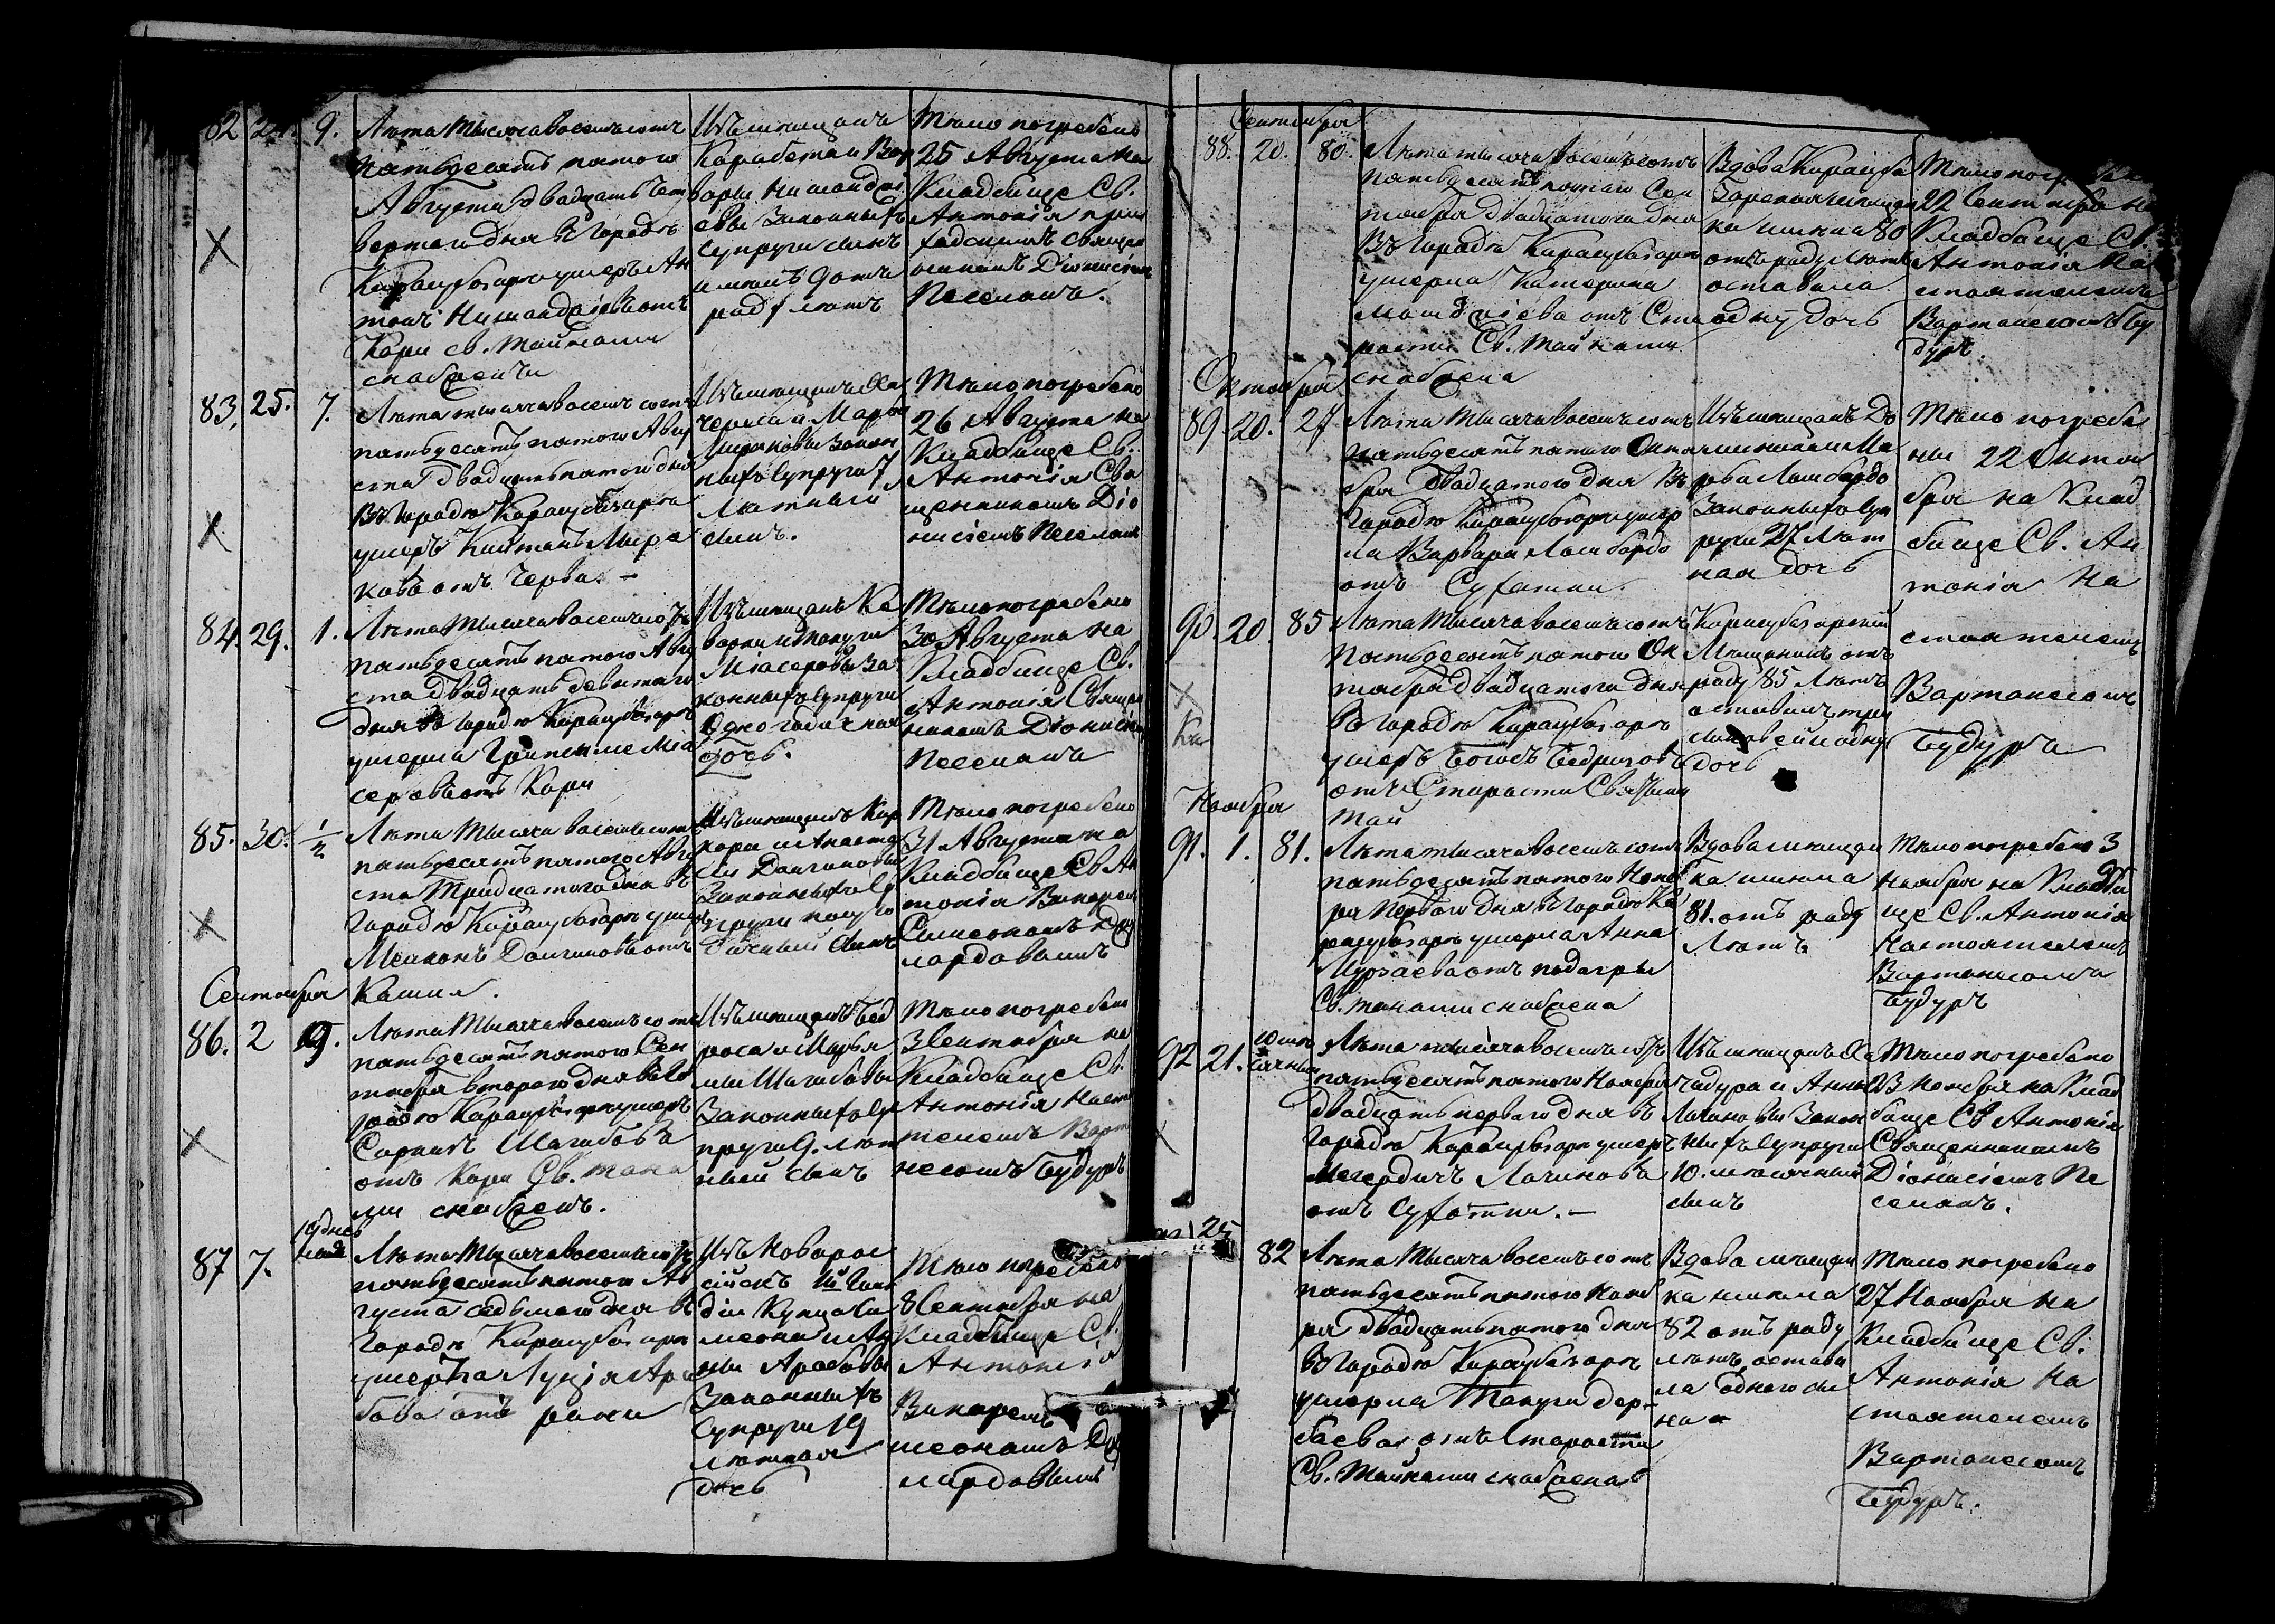 82 24. 9.
Лѣта тысяча восемьсотъ
пятьдесятъ пятого
Августа двадцать чет
вертаго дня въ городѣ
Карасубазарѣ умеръ Ан
тонъ отъ
Кори св. тайнами
снабженъ
Изъ мещанъ
Карабета и Вар
вары
законныхъ
супруги сынъ
имѣлъ 9 отъ
роду лѣтъ
Тѣло погребено
25 Августа на
Кладбище Св.
Антонія при
ходскимъ священ
никомъ Діонисіемъ
83. 25. 7.
Лѣта тысяча восемь сотъ
пятьдесятъ пятого Авгу
ста двадцать пятого дня
въ городѣ Карасубазарѣ
умеръ Мира
ковъ отъ Черва. –
Изъ мещанъ Ха
и Марiи
Мираковы закон
ныхъ супруги 7
лѣтный
сынъ.
Тѣло погребено
26 Августа на
Кладбище Св.
Антонія Свя
щенникомъ Діо
нисіемъ
84. 29. 1.
Лѣта тысяча восемьсотъ
пятьдесятъ пятого Авгу
ста двадцать девятаго
дня въ городѣ Карасубазарѣ
умерла Міа
серовъ отъ Кори
Изъ мещанъ Ке
ворка и Такуги
Міасеровы за
конныхъ супруги
Одногодичная
дочь.
Тѣло погребено
30 Августа на
Кладбище Св.
Антонія Священ
никомъ Діонисіемъ
85. 30. 1/2
Лѣта тысяча восемьсотъ
пятьдесятъ пятого Авгу
ста тридцатого дня въ
городѣ Карасубазарѣ умеръ
отъ
Кашля.
Изъ мещанъ
законныхъ су
пруги полуго
дичный сынъ
Тѣло погребено
31 Августа на
Кладбище Св Ан
тонія Викаремъ
Симеономъ
Сентября
86. 2 9.
Лѣта тысяча восемьсотъ
пятьдесятъ пятого Сен
тября второго дня въ го
родѣ Карасубазарѣ умеръ
Саркисъ Шагабовъ
отъ Кори Св. тайна
ми снабженъ.
Изъ мещанъ Бед
роса и Марья
мы Шагабовы
законныхъ су
пруги 9. лѣт
ный сынъ
Тѣло погребено
3 Сентября на
Кладбище Св.
Антонія Настоя
телемъ Варта
несомъ Будуръ
87 7.
Лѣта тысяча восемьсотъ
пятьдесятъ пятого Ав
густа седьмого дня въ
городѣ Карасубазарѣ
умерла Лусія Ара
бова отъ раны
Изъ Новорос
сійскъ Гиль
діи Купца Си
меона и Ан
ны Арабовы
законныхъ
супруги 19
лѣтная
дочь
Тѣло погребено
8 Сентября на
Кладбище Св.
Антонія
Викаремъ Си
меономъ
Сентября
88. 20. 80.
Лѣта тысяча восемьсотъ
пятьдесятъ пятого Сен
тября двадцатого дня
въ городѣ Карасубазарѣ
умерла Катерина
отъ Ста
рости Св. тайнами
снабжена
Вдова Карасуба
зарская мещан
ка имѣла 80
отъ роду лѣтъ
оставила
одну дочь
Тѣло погребено
22 Сентября на
Кладбище Св.
Антонія На
стоятелемъ
Вартанесомъ Бу
дуръ.
Октября
89. 20. 27
Лѣта тысяча восемьсотъ
пятьдесятъ пятого Октя
бря двадцатого дня въ
городѣ Карасубазарѣ умер
ла Варвара Ломбардо
отъ Сухотки.
Изъ мещанъ До
миника и Ма
Ломбардо
законныхъ су
пруги 27 лѣт
ная дочь
Тѣло погребе
ны 22 Октя
бря на Клад
бище Св. Ан
тонія На
стоятелемъ
Вартанесомъ
Будуръ
90. 20 85
Лѣта тысяча восемьсотъ
пятьдесятъ пятого Ок
тября двадцатого дня
въ городѣ Карасубазарѣ
умеръ Богосъ
отъ Старости Святыми
тай
Карасубазарскій
Мещанинъ отъ
роду 85 лѣтъ
оставилъ три
сыновей и одну
дочь
Ноября
91. 1. 81.
Лѣта тысяча восемьсотъ
пятьдесятъ пятого Нояб
ря первого дня въ городѣ Ка
расубазарѣ умерла Анна
Мурзаева отъ подагры
Св. тайнами снабжена
Вдова мещан
ка имѣла
81. отъ роду
лѣтъ
Тѣло погребено 3
Ноября на Кладби
ще Св. Антонія
Настоятелемъ
Вартанесомъ
Будуръ
92 21. 10 мѣ
сячный
Лѣта тысяча восемьсотъ
пятьдесятъ пятого Ноября
двадцать перваго дня въ
городѣ Карасубазарѣ умеръ
Мегердичъ Лачиновъ
отъ Сухотки. –
Изъ мещанъ Ха
чадура и Анны
Лачиновы закон
ныхъ супруги
10. мѣсячный
сынъ
Тѣло погребено
23 Ноября на Клад
бище Св Антонія
Священникомъ
Діонисіемъ
25
82
Лѣта тысяча восемьсотъ
пятьдесятъ пятого Нояб
ря двадцать пятого дня
въ городѣ Карасубазарѣ
умерла Такуги Дер-
баева отъ Старости
Св. Тайнами снабжена
Вдова мещан
ка имѣла
82 отъ роду
лѣтъ остави
ла одного сы
на
Тѣло погребено
27 Ноября на
Кладбище Св.
Антонія На
стоятелемъ
Вартанесомъ
Будуръ.